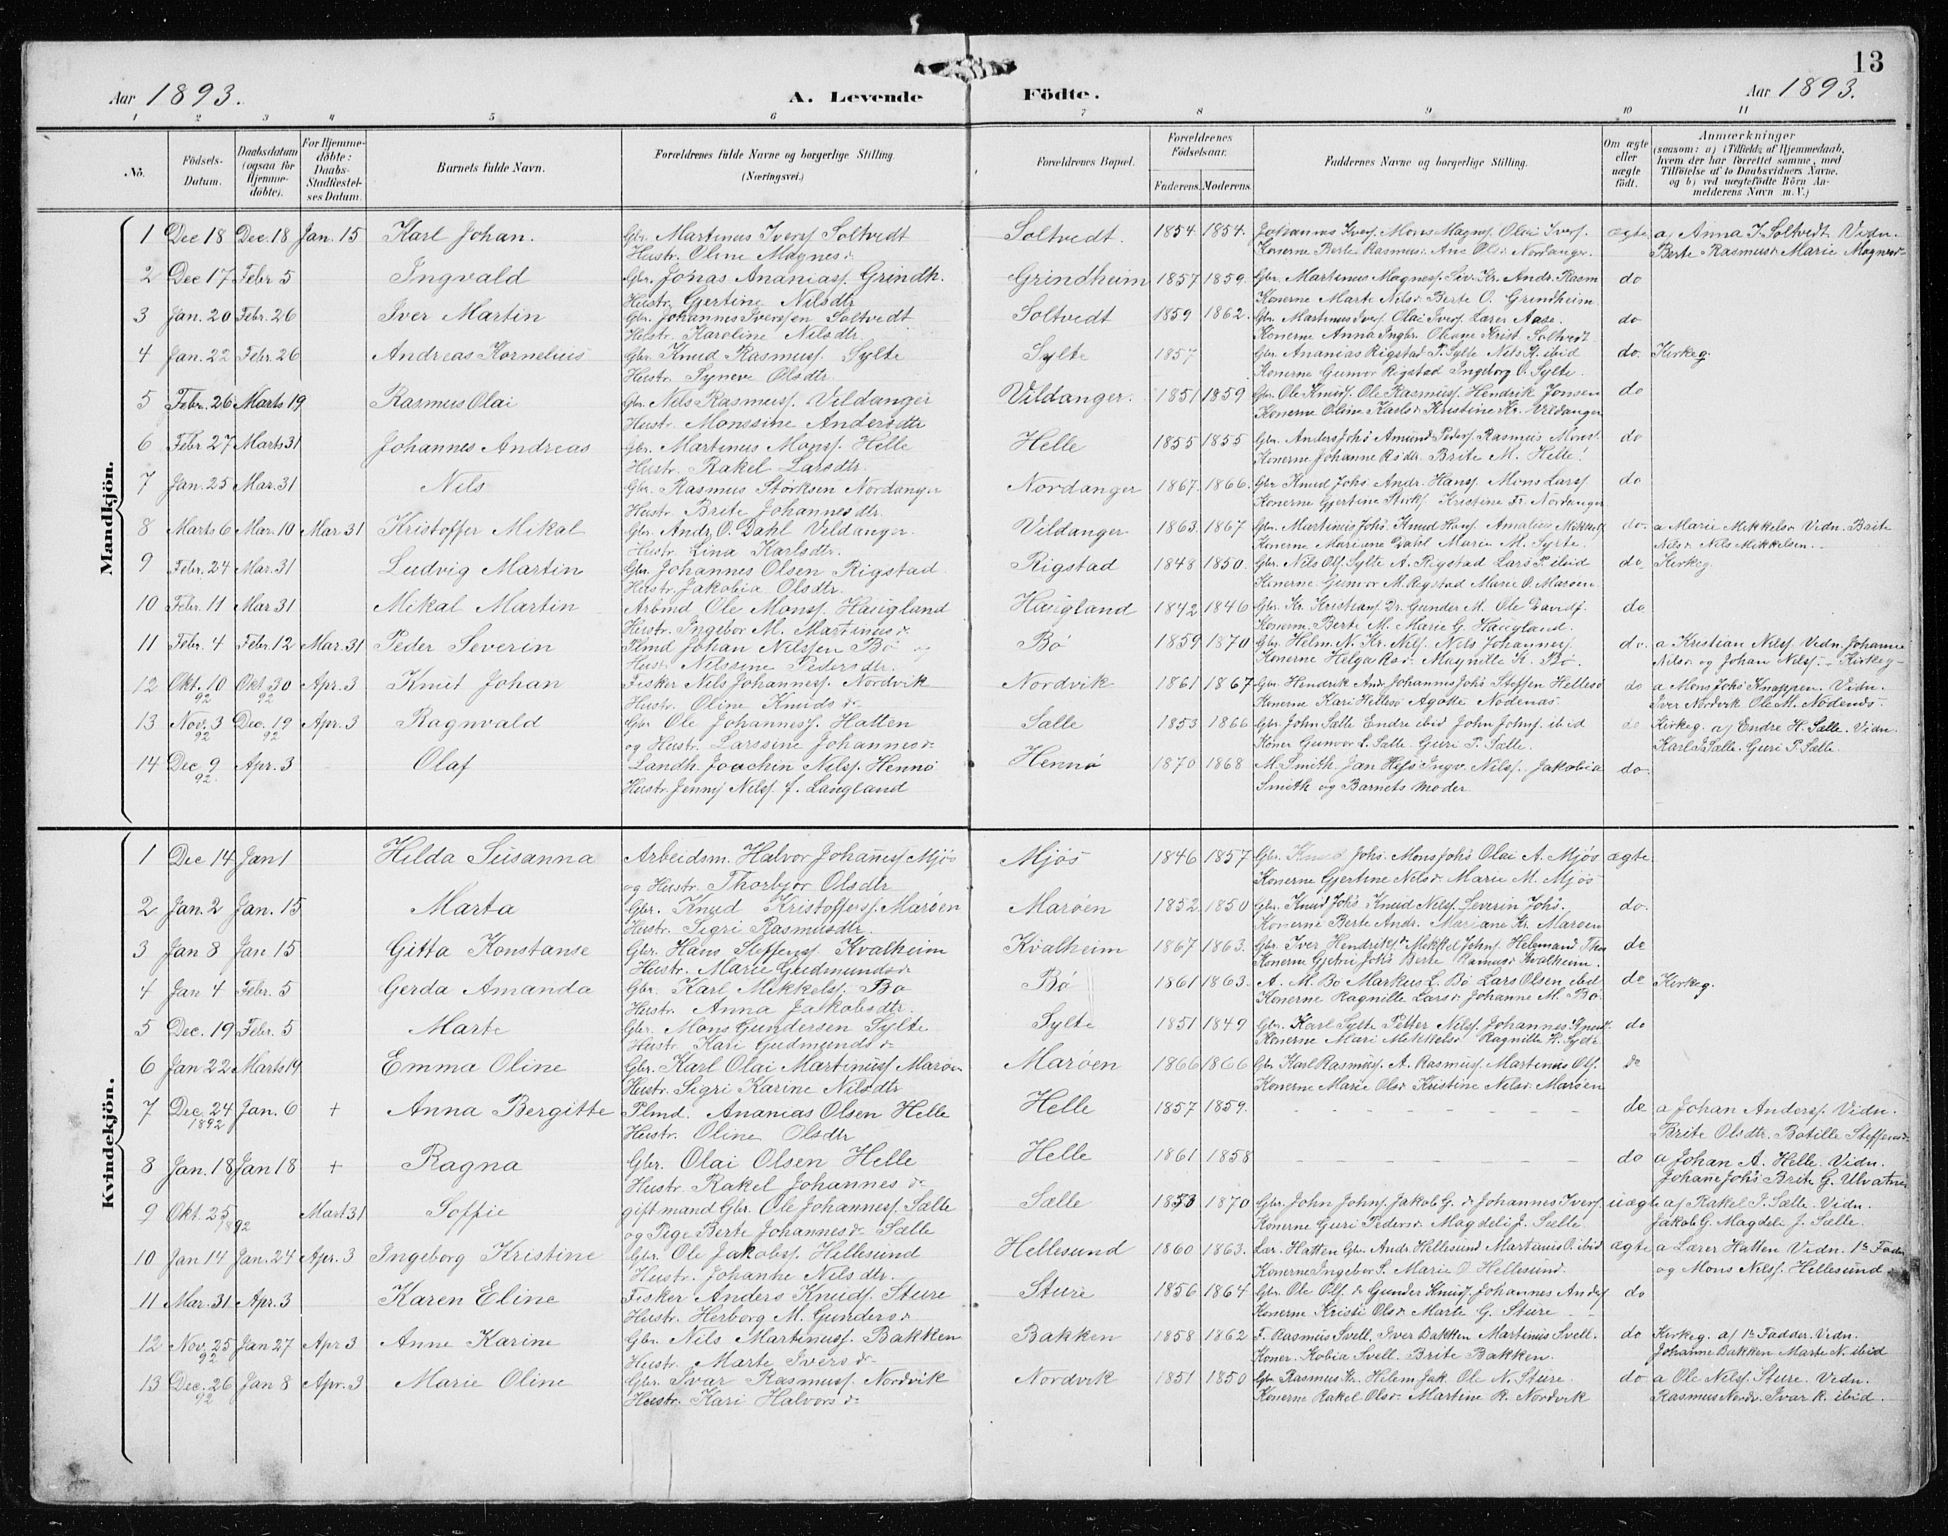 13
Aar 1893. A. Levende Födte. Aar 1893.
1 2 3 4 5 6 7 8 9 10 11
No. Födsels-Datum. Daabsdatum (ogsaa for Hjemme-döbte). For Hjemme-döbte: Daabs-Stadfæstel-ses Datum. Barnets fulde Navn. Forældrenes fulde Navne og borgerlige Stilling. (Næringsvei.) Forældrenes Bopæl. Forældrenes Födselsaar. Faderens. Moderens. Faddernes Navne og borgerlige Stilling. Om ægte eller uægte födt. Anmærkninger (saasom: a) i Tilfælde af Hjemmedaab, hvem der har forrettet samme, med Tilföielse af to Daabsvidners Navne, og b) ved uægtefödte Börn An-melderens Navn m. V.)
Mandkjön.
1 Dec 18 Dec. 18 Jan. 15 Karl Johan. Gbr. Martinus Ivers. Soltvedt Soltvedt. 1854. 1854. Johannes Ivers. Mons Magns. Olai Ivers. ægte a/ Anna I. Soltvedt Vidn.
Hustr. Oline Magnesdr Konerne Berte Rasmusd. Ane Olsd. Nordanger. Berte Rasmusd. Marie Magnesd.
2 Dec 17 Febr 5 Ingvald Gbr. Jonas Ananiass. Grindh. Grindheim 1857 1859. Gbr. Martinus Magness. Siv. Kr. Andr. Rasm do
Hustr. Gjertine Nilsdtr Konerne Marte Nilsd. Berte O. Grindheim.
3 Jan. 20 Febr. 26 Iver Martin Gbr. Johannes Iverssen Soltvedt Soltvedt 1859 1862. Gbr. Martinus Ivers. Olai Ivers. Lærer Aase. do
Hustr. Karoline Nilsdtr. Konerne Anna Ingbr. Krist. Soltvedt
4 Jan. 22 Febr. 26 Andreas Kornelius Gbr. Knud Rasmuss. Sylte Sylte 1857 Gbr. Ananias Rigstad P. Sylte Nils K. ibid do. Kirkeg.
Hustr. Syneve Olsdtr. Konerne Gunvor Rigstad Ingeborg O. Sylte.
5 Febr. 26 Marts 19 Rasmus Olai Gbr. Nels Rasmuss. Vildanger Vildanger. 1851 1859 Gbr. Ole Knuds. Ole Rasmuss. Hendrik Jonsen do
Hustr. Monssine Andersdtr Konerne Oline Karlsd. Kristine Kr. Vildanger
6 Febr 27 Marts 31 Johannes Andreas Gbr. Martinus Monss. Helle Helle 1855 1855 Gbr. Anders Johs. Amund Peders. Rasmus Mons. do
Hustr. Rakel Larsdtr. Konerne Johanne Brite M. Helle.
7 Jan. 25 Mar. 31 Nils Gbr. Rasmus Størksen Nordanger Nordanger 1867. 1866. Gbr Knud Johs Andr. Hans. Mons Lars. do
Hustr. Brite Johannesdtr. Konerne Gjertine Kristine Nordanger
8 Marts 6 Mar. 10 Mar. 31 Kristoffer Mikal Gbr. Andr. O. Dahl Vildanger. Vildanger 1863. 1867 Gbr. Martinus Johs. Knud Amalius do. a Marie Mikkelsd. Vidn. Brite
Hustr. Lina Karlsdtr. Konerne Mariane Dahl Marie M. Sylte. Nilsd. Nils Mikkelsen.
9 Febr. 24 Mar. 31 Ludvig Martin Gbr. Johannes Olsen Rigstad Rigstad 1848 1850. Gbr. Nils Ols. Sylte A. Rigstad Lars P. ibid do. Kirkeg.
Hustr. Jakobia Olsdtr. Konerne Gunvor M. Rigstad Marie O. Marøen
10 Febr. 11 Mar. 31 Mikal Martin Arbmd Ole Monss. Haugland Haugland 1842 1846 Gbr. Kr. Kristians. Gunder M. Ole Davids. do
Hustr. Ingebor M. Martinusdr Konerne Berte M. Marie G. Haugland.
11 Febr. 4 Febr. 12 Mar. 31 Peder Severin Plmd Johan Nilssen Bø og Bø 1859 1870 Gbr. Helm. N. Kr. Nils. Nils Johannes. do. a Kristian Nils. Vidn. Johanne
Hust. Nilssine Pedersdtr. Konerne Helga Ksd. Magnille K. Bø. Nilsd og Johan Nils. Kirkeg
12 Okt. 10 92 Okt 30 92 Apr. 3 Knut Johan Fisker Nils Johanness. Nordvik Nordvik 1861 1867 Gbr. Hendrik And. Johannes Johs. Steffen Hellesø do a Mons Johs. Knappen. Vidn.
Hustr. Oline Knudsdr Konerne Kari Hellesø Agotte Nødenæs. Iver Nordvik Ole M. Nødenæs
13 Nov. 3 92 Dec. 19 92 Apr. 3 Ragnvald Gbr Ole Johanness. Hatten Sælle 1853 1866 Gbr. John Sælle Endre ibid John Johns. ibid do Kirkeg. a/ Endre H. Sælle. Vidn.
og Hustr. Larssine Johannesdr Koner Gunvor L. Sælle. Guri P. Sælle. Karl J. Sælle. Guri P. Sælle.
14 Dec. 9 92. Apr. 3 Olaf Landh. Joachin Nilss. Hennø Hennø 1870 1868 M. Smith. Jan Ingv. Nilss. Jakobia do.
Hustr. Jenny Nilss. f. Laugland Smith og Barnets Moder
Kvindekjön.
1 Dec 14 Jan 1 Hilda Susanna Arbeidsm. Halvor Johanness Mjøs Mjøs 1846 1857 Gbr. Knud Johs. Mons Johs Olai A. Mjøs ægte.
og Hustr. Thorbjør Olsdtr Konerne Gjertine Nelsd. Marie M. Mjøs
2 Jan. 2 Jan. 15 Marta Gbr. Knud Kristofferss. Marøen Marøen 1852 1850 Gbr. Knud Johs Knud Nels. Severin Johs. do.
Hustr. Sigri Rasmusdtr. Konerne Berte Andr. Mariane Kr. Marøen
3 Jan 8 Jan 15 Gitta Konstanse Gbr. Hans Steffens. Kvalheim Kvalheim 1867 1863. Gbr. Iver Hendriks. Mekkel Johns. Helmmand do
Hustr. Marie Gudmundsdr Konerne Johs Berte Rasmusd Kvalheim.
4 Jan 4 Febr. 5 Gerda Amanda Gbr. Karl Mekkelss. Bø Bø 1861 1863. A. M. Bø Markus L. Bø Lars Olsen ibid do Kirkeg.
Hustr. Anna Jakobsdtr. Konerne Ragnille Larsd. Johanne M. Bø
5 Dec. 19 Febr. 5 Marte Gbr. Mons Gundersen Sylte Sylte 1851 1849 Gbr. Karl Sylte Petter Nils. Johannes Knud. do
Hustr. Kari Gudmundsdr Konerne Mari Mekkelsd Ragnille
6 Jan 22 Marts 19 Emma Oline Gbr. Karl Olai Martinuss Marøen Marøen 1866 1866 Gbr Karl Rasmuss. A. Rasmuss. Martenus Ols. do
Hustr. Sigri Karine Nilsdtr Konerne Marie Olsd Kristine Nelsd. Marøen
7 Dec. 24 1892 Jan. 6 + Anna Bergitte Plmd. Ananias Olsen Helle Helle 1857 1859. do a Johan Anders. Vidn.
Hustr. Oline Olsdtr Brite Olsdtr. Botille Steffensd.
8 Jan. 18 Jan 18 + Ragna Gbr. Olai Olsen Helle Helle 1861 1858 do a Johan A. Helle. Vidn.
Hustr. Rakel Johannesdr Johane Johs Brite G. Ulvatn
9 Okt. 25 1892 Mart 31 Soffie gift mand Gbr. Ole Johanness. Sælle Sælle 1853 1870 Gbr. John Johns. Jakob G. Johannes Ivers uægte a/ Rakel I. Sælle. Vidn.
og Pige Berte Johannesdr Sælle Konerne Guri Pedersd. Magdeli J. Sælle. Jakob G. Magdeli J. Sælle.
10 Jan 14 Jan. 24 Apr. 3 Ingeborg Kristine Gbr. Ole Jakobss. Hellesund Hellesund 1860 1863. Lær. Hatten Gbr. Andr. Hellesund Martinus O. ibid ægte a Lærer Hatten Vidn. 1ste Fadder
Hustr. Johanne Nilsdtr. Konerne Ingebor S. Marie O. Hellesund. og Mons Nilss. Hellesund
11 Mar. 31 Apr. 3 Karen Eline Fisker Anders Knuds. Sture Sture 1856 1864 Gbr. Ole Ols. Gunder Knuds. Johannes Anders do
Hustr. Herborg M. Gundersdr Konerne Kristi Olsd. Marte G. Sture
12 Nov. 25 92 Jan 27 Apr 3 Anne Karine Gbr. Nils Martinuss. Bakken Bakken 1858 1862 F. Rasmus Svell. Iver Bakken Martinus Svell. do Kirkeg. a/ 1ste Fadder. Vidn.
Hustr. Marte Iversdr. Koner. Kobia Svell. Brite Bakken. Johanne Bakken Marte N. ibid
13 Dec. 26 92 Jan 8 Apr. 3 Marie Oline Gbr. Ivar Rasmuss. Nordvik Nordvik 1851 1850 Gbr. Rasmus Kr. Helem Jak. Ole N. Sture. do a Ole Nels. Sture. Vidn.
Hustr. Kari Halvorsdr Konerne Rakel Olsd. Martine R. Nordvik Rasmus Nordv. Ivar R. ibid.